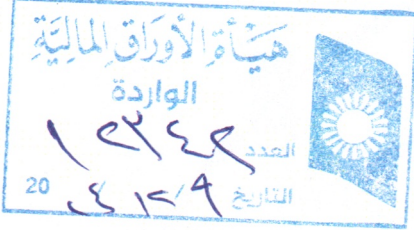 هيأة الأوراق المالية
الواردة
العدد ١٢٣٤٢
التاريخ ٩ / ١٢ 20